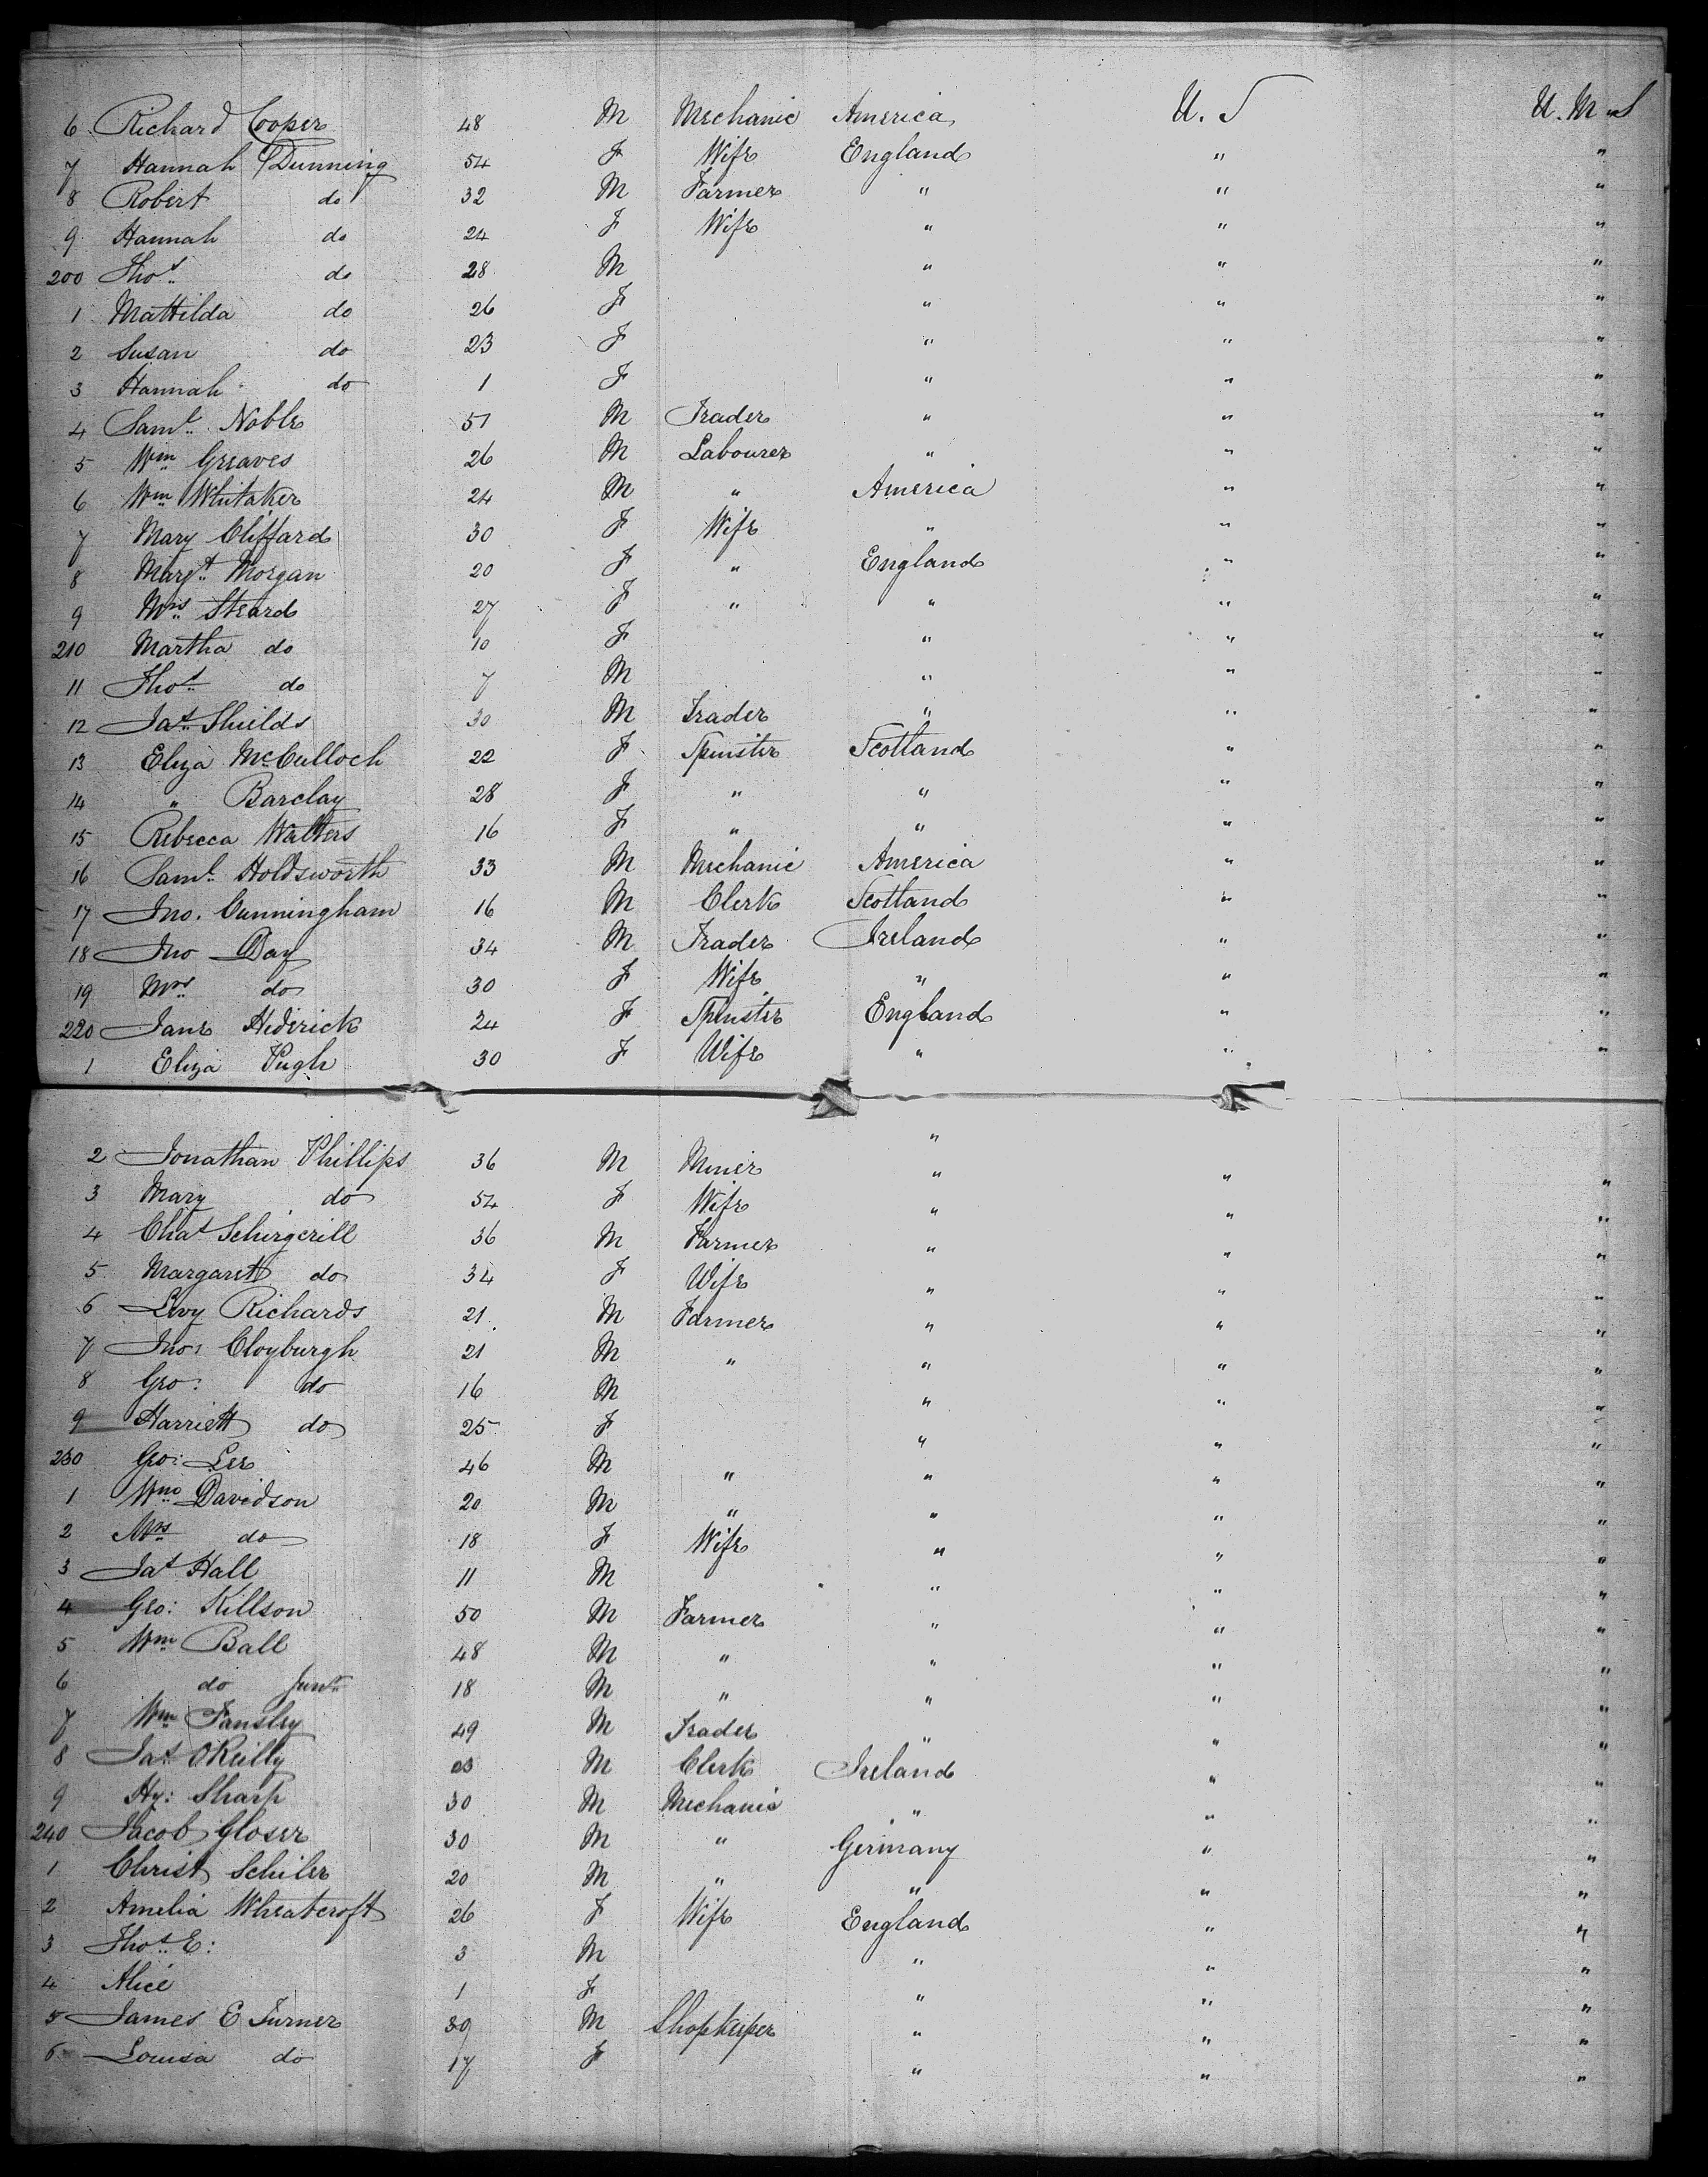 6. Richard Cooper 48 M Mechanic America U. S U. M. S
7 Hannah Dunning 54 F Wife England " "
8 Robert do 32 M Farmer " " "
9. Hannah do 24 F Wife " " "
200 Thos. do 28 M " " "
1 Mattilda do 26 F " " "
2 Susan do 23 F " " "
3 Hannah do 1 F " " "
4 Saml. Noble 51 M Trader " " "
5 Wm Greaves 26 M Labourer " " "
6 Wm Whitaker 24 M " America " "
7 Mary Cliffard 30 F Wife " " "
8 Margt. Morgan 20 F " England " "
9 Mrs. Steard 27 F " " " "
210 Martha do 10 F " " "
11 Thos. do 7 M " " "
12 Jas. Shields 30 M Trader " " "
13 Eliza McCulloch 22 F Spinster Scotland " "
14 " Barclay 28 F " " " "
15 Rebecca Walters 16 F " " " "
16 Saml. Holdsworth 33 M Mechanic America " "
17 Jno. Cunningham 16 M Clerk Scotland " "
18 Jno Day 34 M Trader Ireland " "
19 Mrs do 30 F Wife " " "
220 Jane Hederick 24 F Spinster England " "
1 Eliza Pugh 30 F Wife " " "
2 Jonathan Phillips 36 M Miner " " "
3 Mary do 54 F Wife " " "
4 Chas 36 M Farmer " " "
5 Margarett do 34 F Wife " " "
6 Levy Richards 21 M Farmer " " "
7 Jno: Cloyburgh 21 M " " " "
8 Geo: do 16 M " " "
9 Harriett do 25 F " " "
230 Geo: Lee 46 M " " " "
1 Wm Davidson 20 M " " " "
2 Mrs do 18 F Wife " " "
3 Jas Hall 11 M " " "
4 Geo: Killson 50 M Farmer " " "
5 Wm Ball 48 M " " " "
6 do Junr 18 M " " " "
7 Wm Tansley 49 M Trader " " "
8 Jas. O'Reilly M Clerk Ireland " "
9 Hy: Sharp 30 M Mechanic " " "
240 Jacob Gloser 30 M " Germany " "
1 Christ Schiler 20 M " " " "
2 Amelia Wheatcroft 26 F Wife England " "
3 Thos. E: 3 M " " "
4 Alice 1 F " " "
5 James E Turner 39 M Shopkeeper " " "
6 Louisa do 17 F " " "